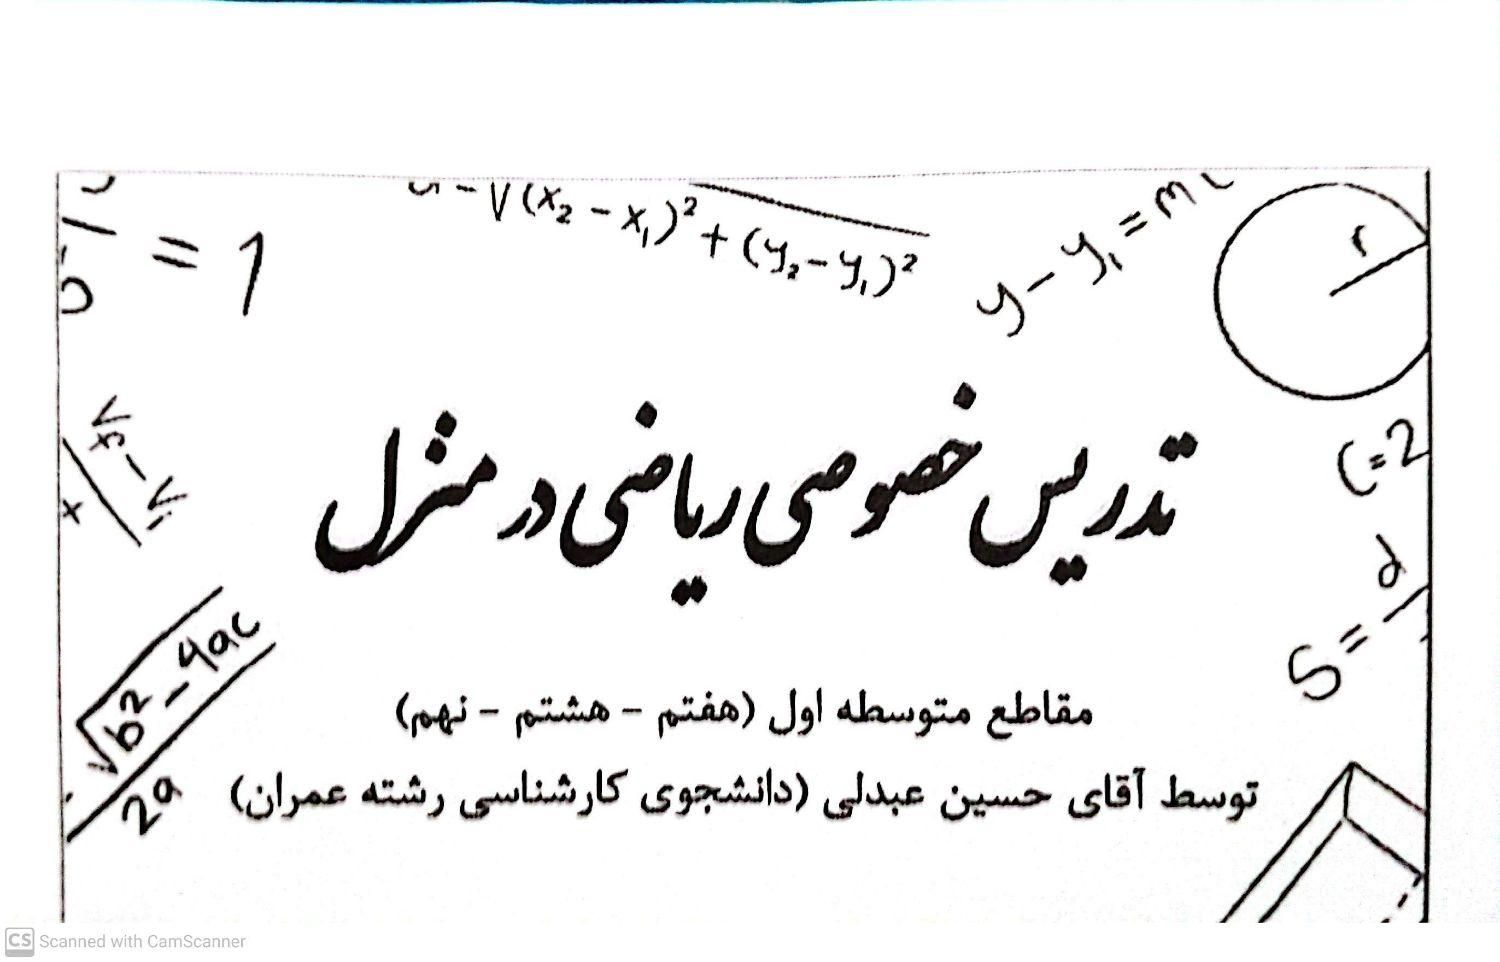 = 1
(x₂ - x₁)² + (y₂ - y₁)²
y - y₁ = m
r
تدریس خصوصی ریاضی در منزل
C = 2
S =
d
√b² - 4ac
2a
مقاطع متوسطه اول (هفتم - هشتم - نهم)
توسط آقای حسین عبدلی (دانشجوی کارشناسی رشته عمران)
CS Scanned with CamScanner